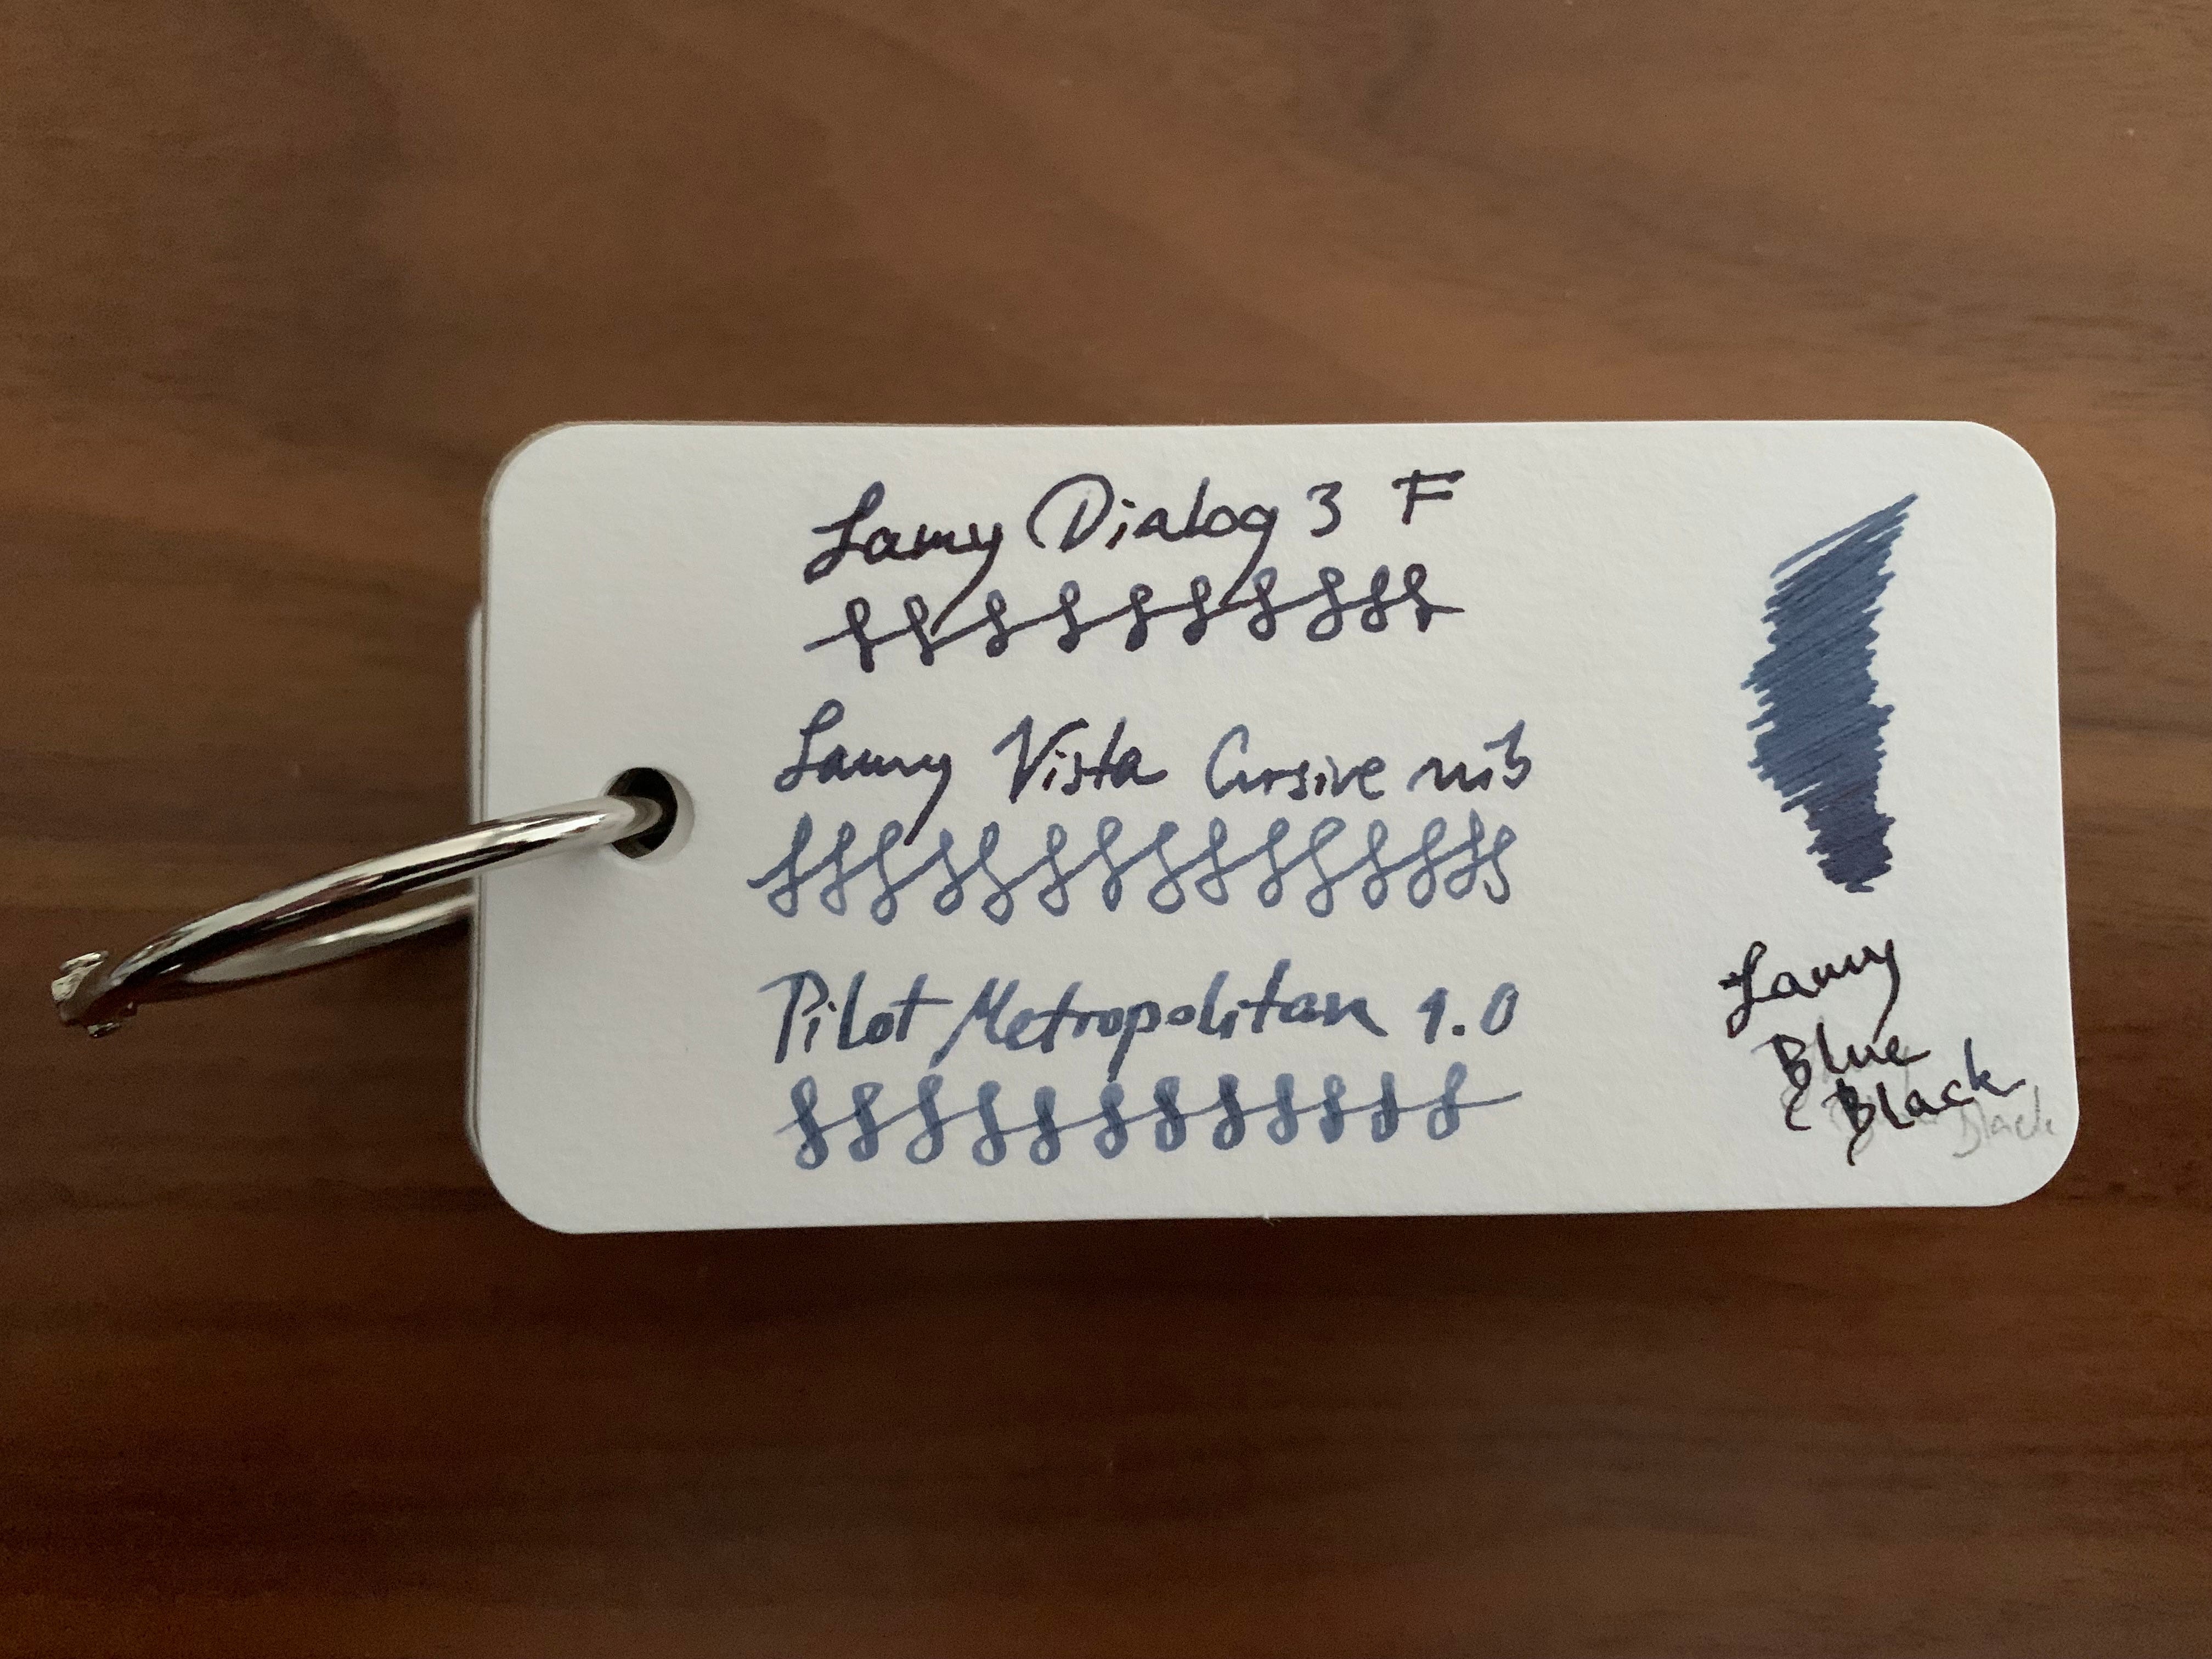 Lamy Dialog 3 F
Lamy Vista Cursive nib
Pilot Metropolitan 1.0
Lamy
Blue
Black
Black